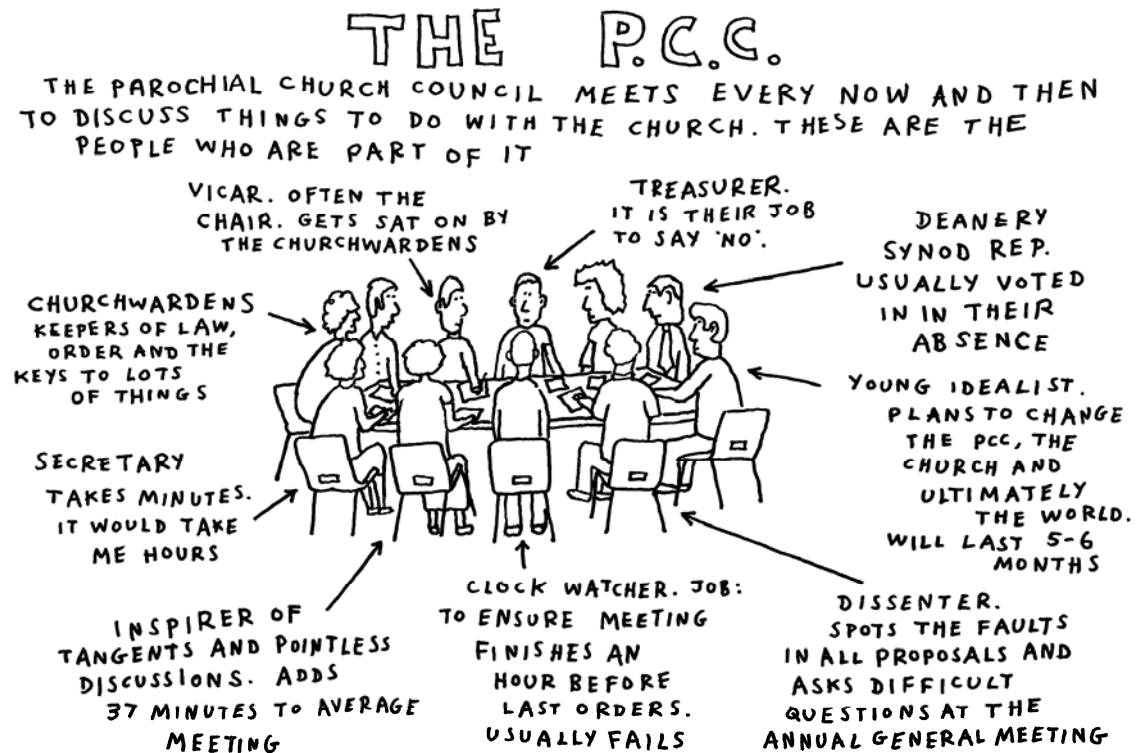 THE P.C.C.
THE PAROCHIAL CHURCH COUNCIL MEETS EVERY NOW AND THEN
TO DISCUSS THINGS TO DO WITH THE CHURCH. THESE ARE THE
PEOPLE WHO ARE PART OF IT
VICAR. OFTEN THE
CHAIR. GETS SAT ON BY
THE CHURCHWARDENS
TREASURER.
IT IS THEIR JOB
TO SAY 'NO'.
DEANERY
SYNOD REP.
USUALLY VOTED
IN IN THEIR
ABSENCE
CHURCHWARDENS
KEEPERS OF LAW,
ORDER AND THE
KEYS TO LOTS
OF THINGS
YOUNG IDEALIST.
PLANS TO CHANGE
THE PCC, THE
CHURCH AND
ULTIMATELY
THE WORLD.
WILL LAST 5-6
MONTHS
SECRETARY
TAKES MINUTES.
IT WOULD TAKE
ME HOURS
INSPIRER OF
TANGENTS AND POINTLESS
DISCUSSIONS. ADDS
37 MINUTES TO AVERAGE
MEETING
CLOCK WATCHER. JOB:
TO ENSURE MEETING
FINISHES AN
HOUR BEFORE
LAST ORDERS.
USUALLY FAILS
DISSENTER.
SPOTS THE FAULTS
IN ALL PROPOSALS AND
ASKS DIFFICULT
QUESTIONS AT THE
ANNUAL GENERAL MEETING